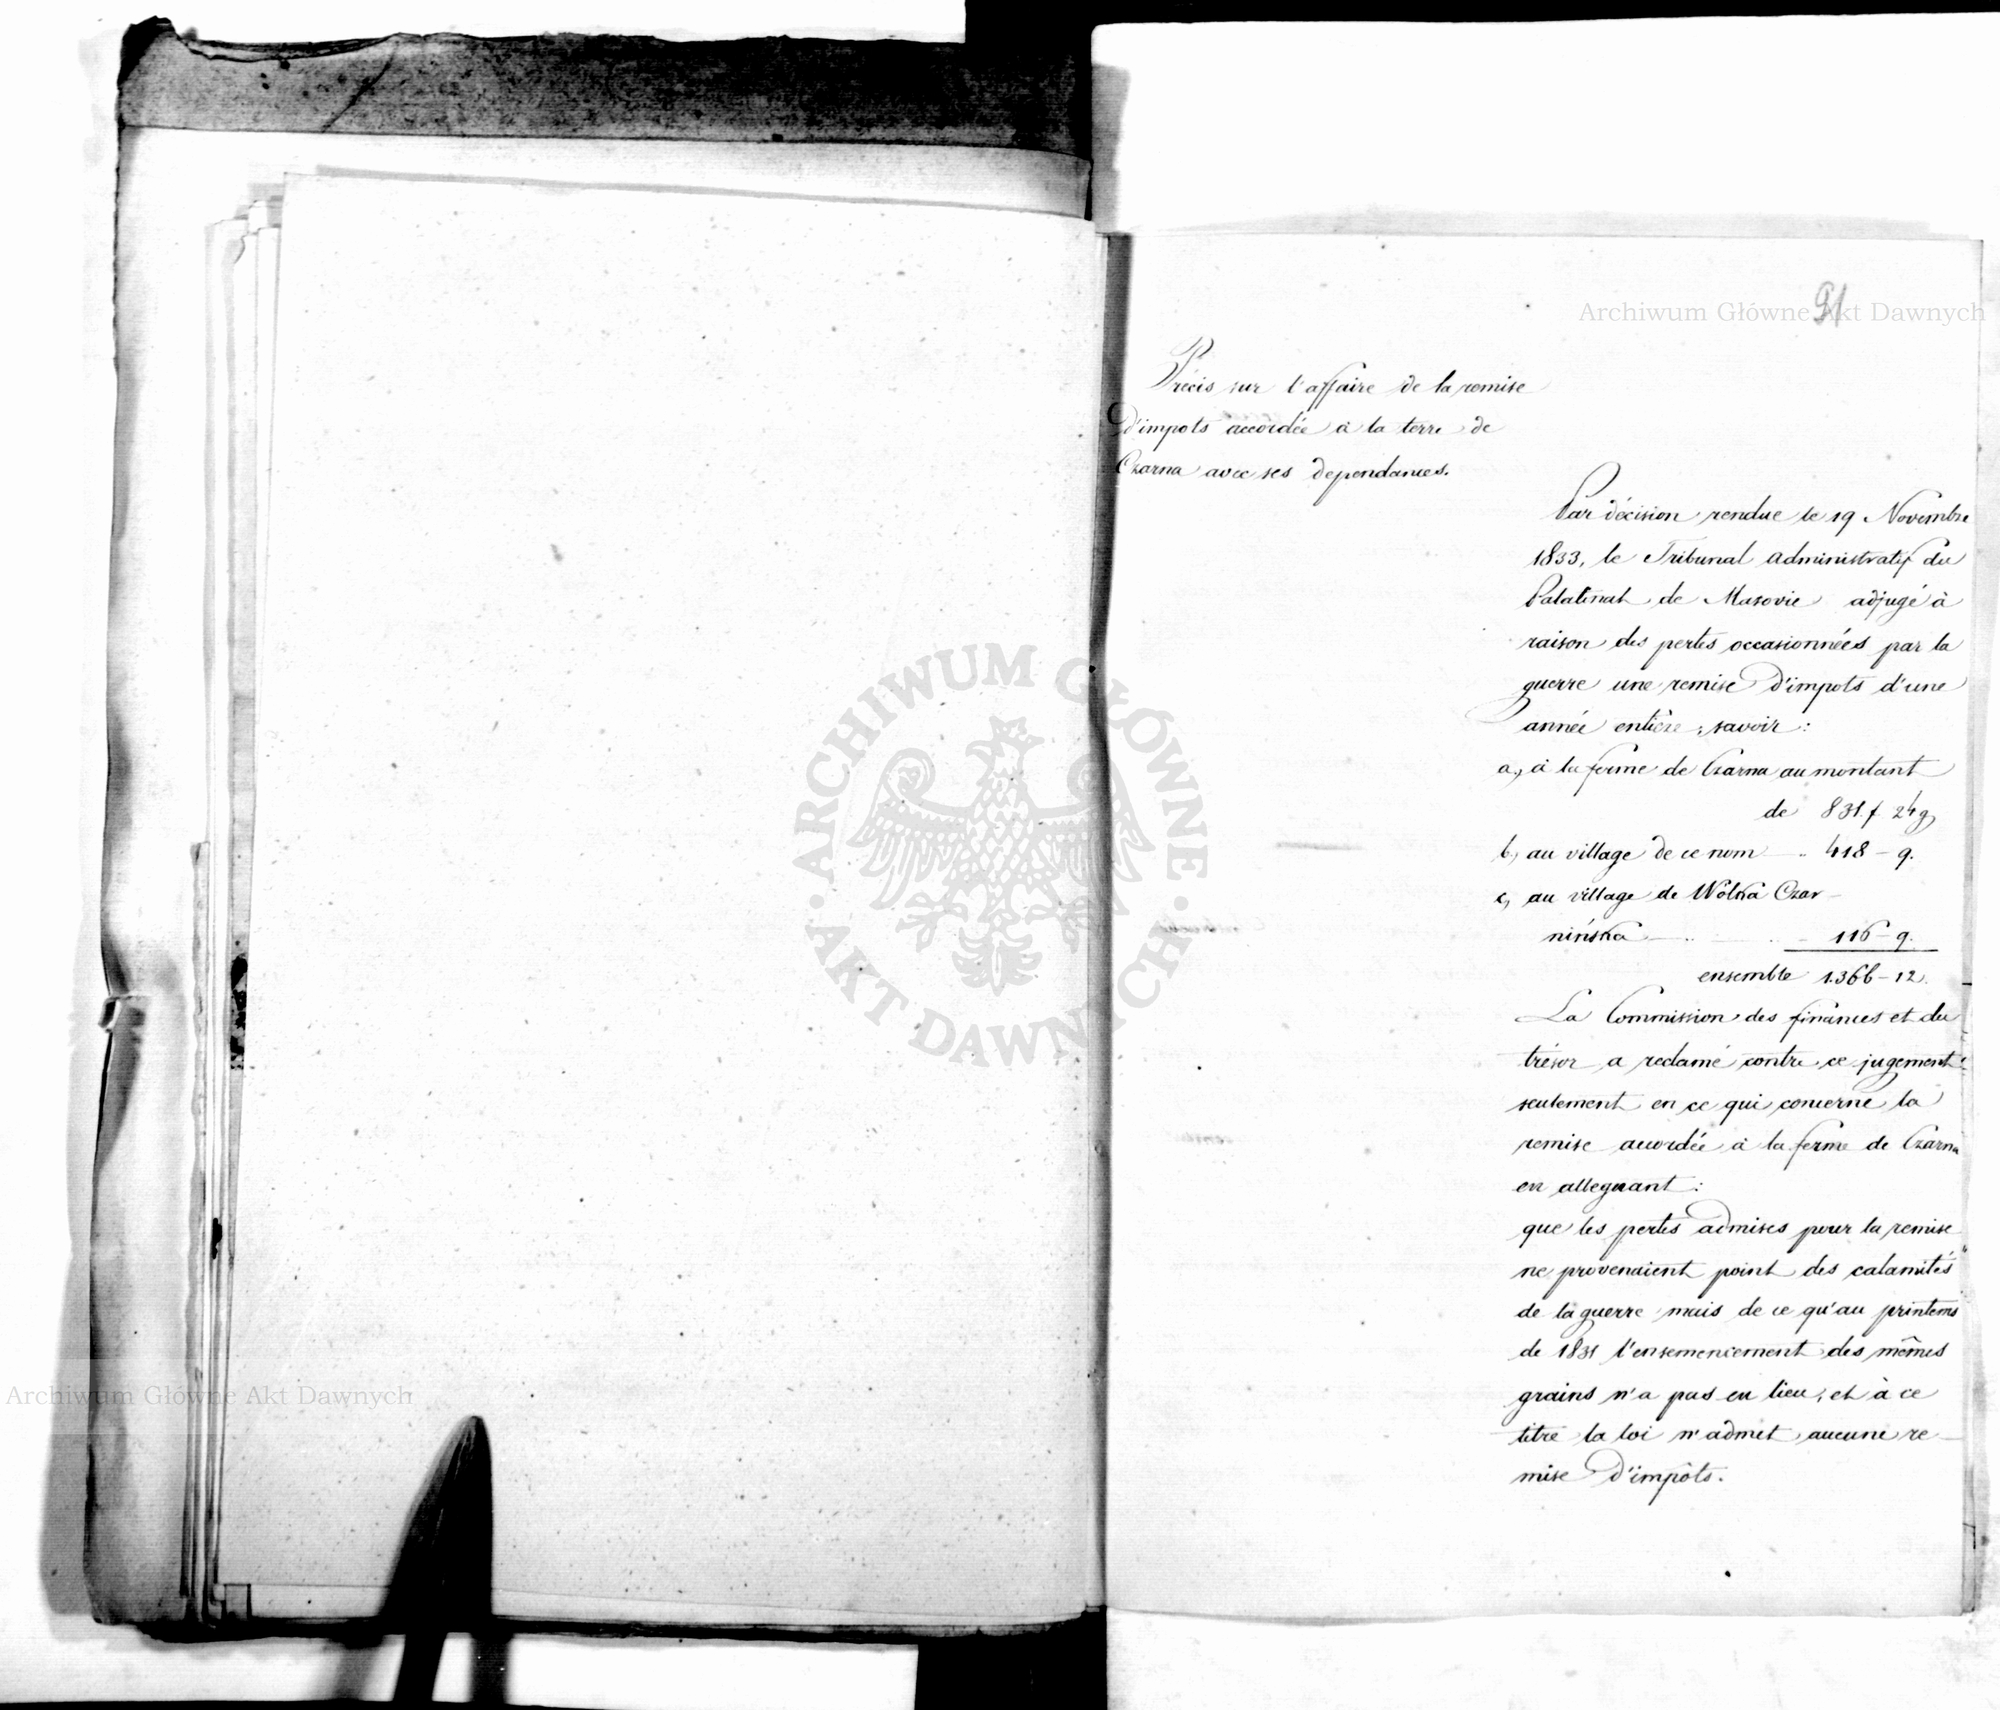 91
Archiwum Główne Akt Dawnych
Précis sur l'affaire de la remise
d'impots accordée à la terre de
Czarna avec ses dependances.
Par décision rendue le 19 Novembre
1833, le Tribunal administratif du
Palatinat de Masovie adjugé à
raison des pertes occasionnées par la
guerre une remise d'impots d'une
année entière, savoir:
a, à la ferme de Czarna au montant
de 831 f 24 g
b, au village de ce nom — .. 418 – 9.
c, au village de Wólka Czar-
nińska — .. — .. – 116 – 9.
ensemble 1366 – 12.
La Commission des finances et du
trésor a reclamé contre ce jugement
seulement en ce qui concerne la
remise accordée à la ferme de Czarna
en alleguant:
que les pertes admises pour la remise
ne provenaient point des calamités
de la guerre mais de ce qu'au printems
de 1831 l'ensemencement des mêmes
grains n'a pas eu lieu, et à ce
titre la loi n'admet aucune re-
mise d'impôts.
ARCHIWUM GŁÓWNE
AKT DAWNYCH
Archiwum Główne Akt Dawnych